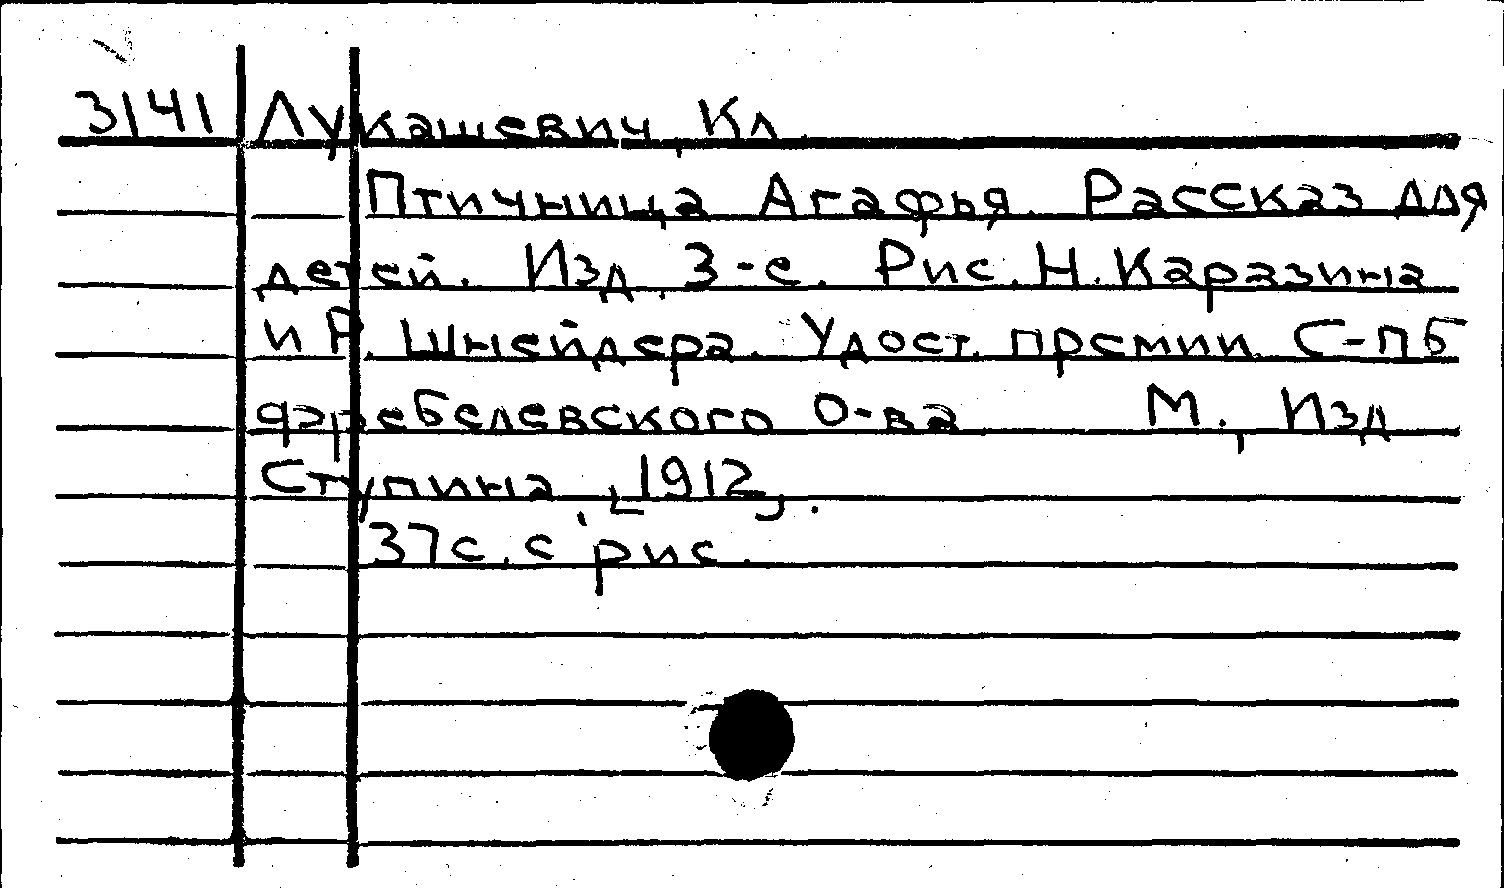 3141 Лукашевич, Кл.
Птичница Агафья. Рассказ для
детей. Изд. 3-е. Рис. Н. Каразина
и Р. Шнейдера. Удост. премии С-пб
фребелевского о-ва М., Изд
Ступина, [1912].
37с. с рис.